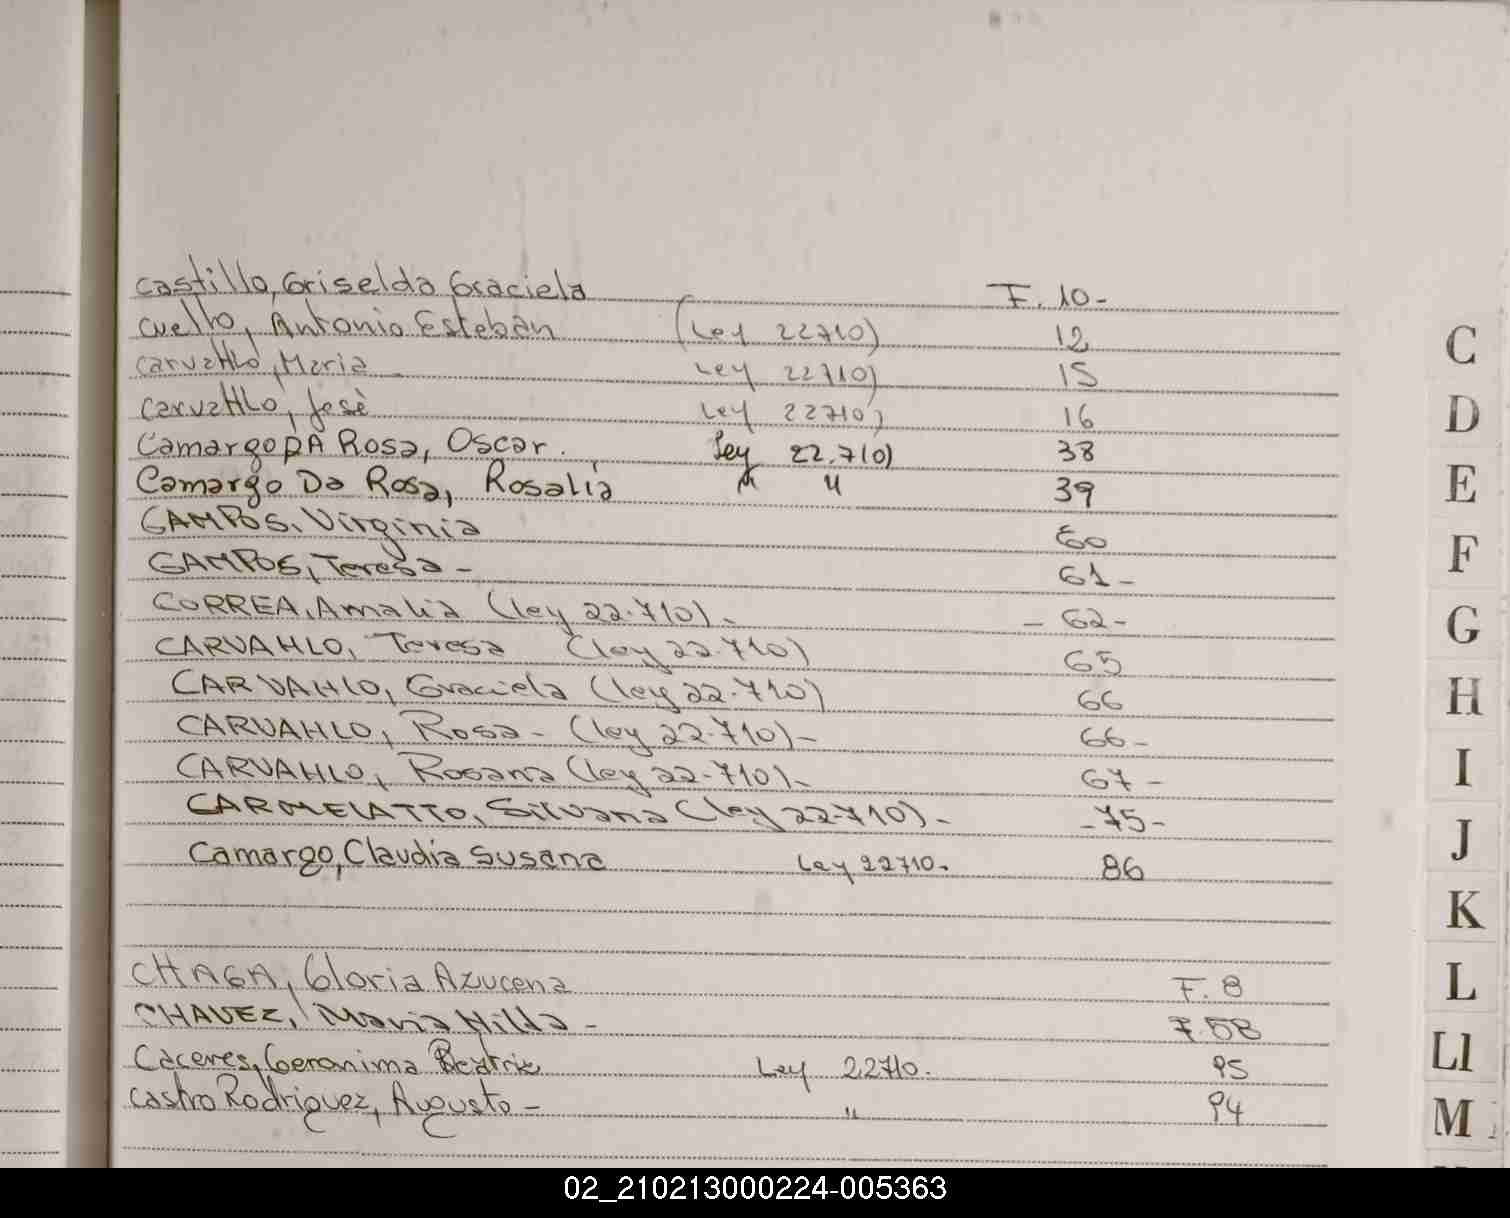 Castillo, Griselda Graciela F. 10-
Cuello, Antonio Esteban (Ley 22710) 12
CarvaHlo, Maria Ley 22710) 15
CarvaHlo, Josè Ley 22710) 16
Camargo DA Rosa, Oscar. Ley 22.710) 38
Camargo Da Rosa, Rosalia " " 39
CAMPOS, Virginia 60
CAMPOS, Teresa - 61-
CORREA, Amalia (ley 22.710)- - 62-
CARVAHLO, Teresa (ley 22.710) 65
CARVAHLO, Graciela (ley 22.710) 66
CARVAHLO, Rosa - (ley 22.710)- 66-
CARVAHLO, Rosana (ley 22-710)- 67-
CARMELATTO, Silvana (ley 22-710)- -75-
Camargo, Claudia Susana Ley 22710. 86
C
D
E
F
G
H
I
J
K
L
Ll
M
CHAGA, Gloria Azucena F. 8
CHAVEZ, Maria Hilda - F. 58
Caceres, Geronima Beatriz Ley 22710. 95
Castro Rodriguez, Augusto - " 94
02_210213000224-005363